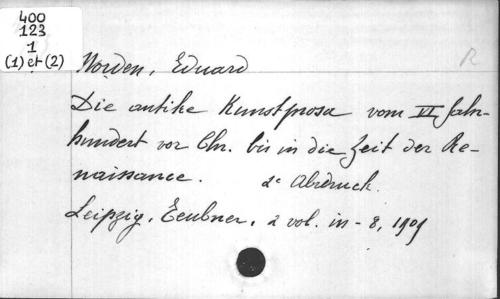 400
123
1
(1) et (2)
Norden, Eduard
R
Die antike Kunstprosa vom VI Jahr-
hundert vor Chr. bis in die Zeit der Re-
naissance. 2e Abdruck.
Leipzig, Teubner, 2 vol. in-8, 1909